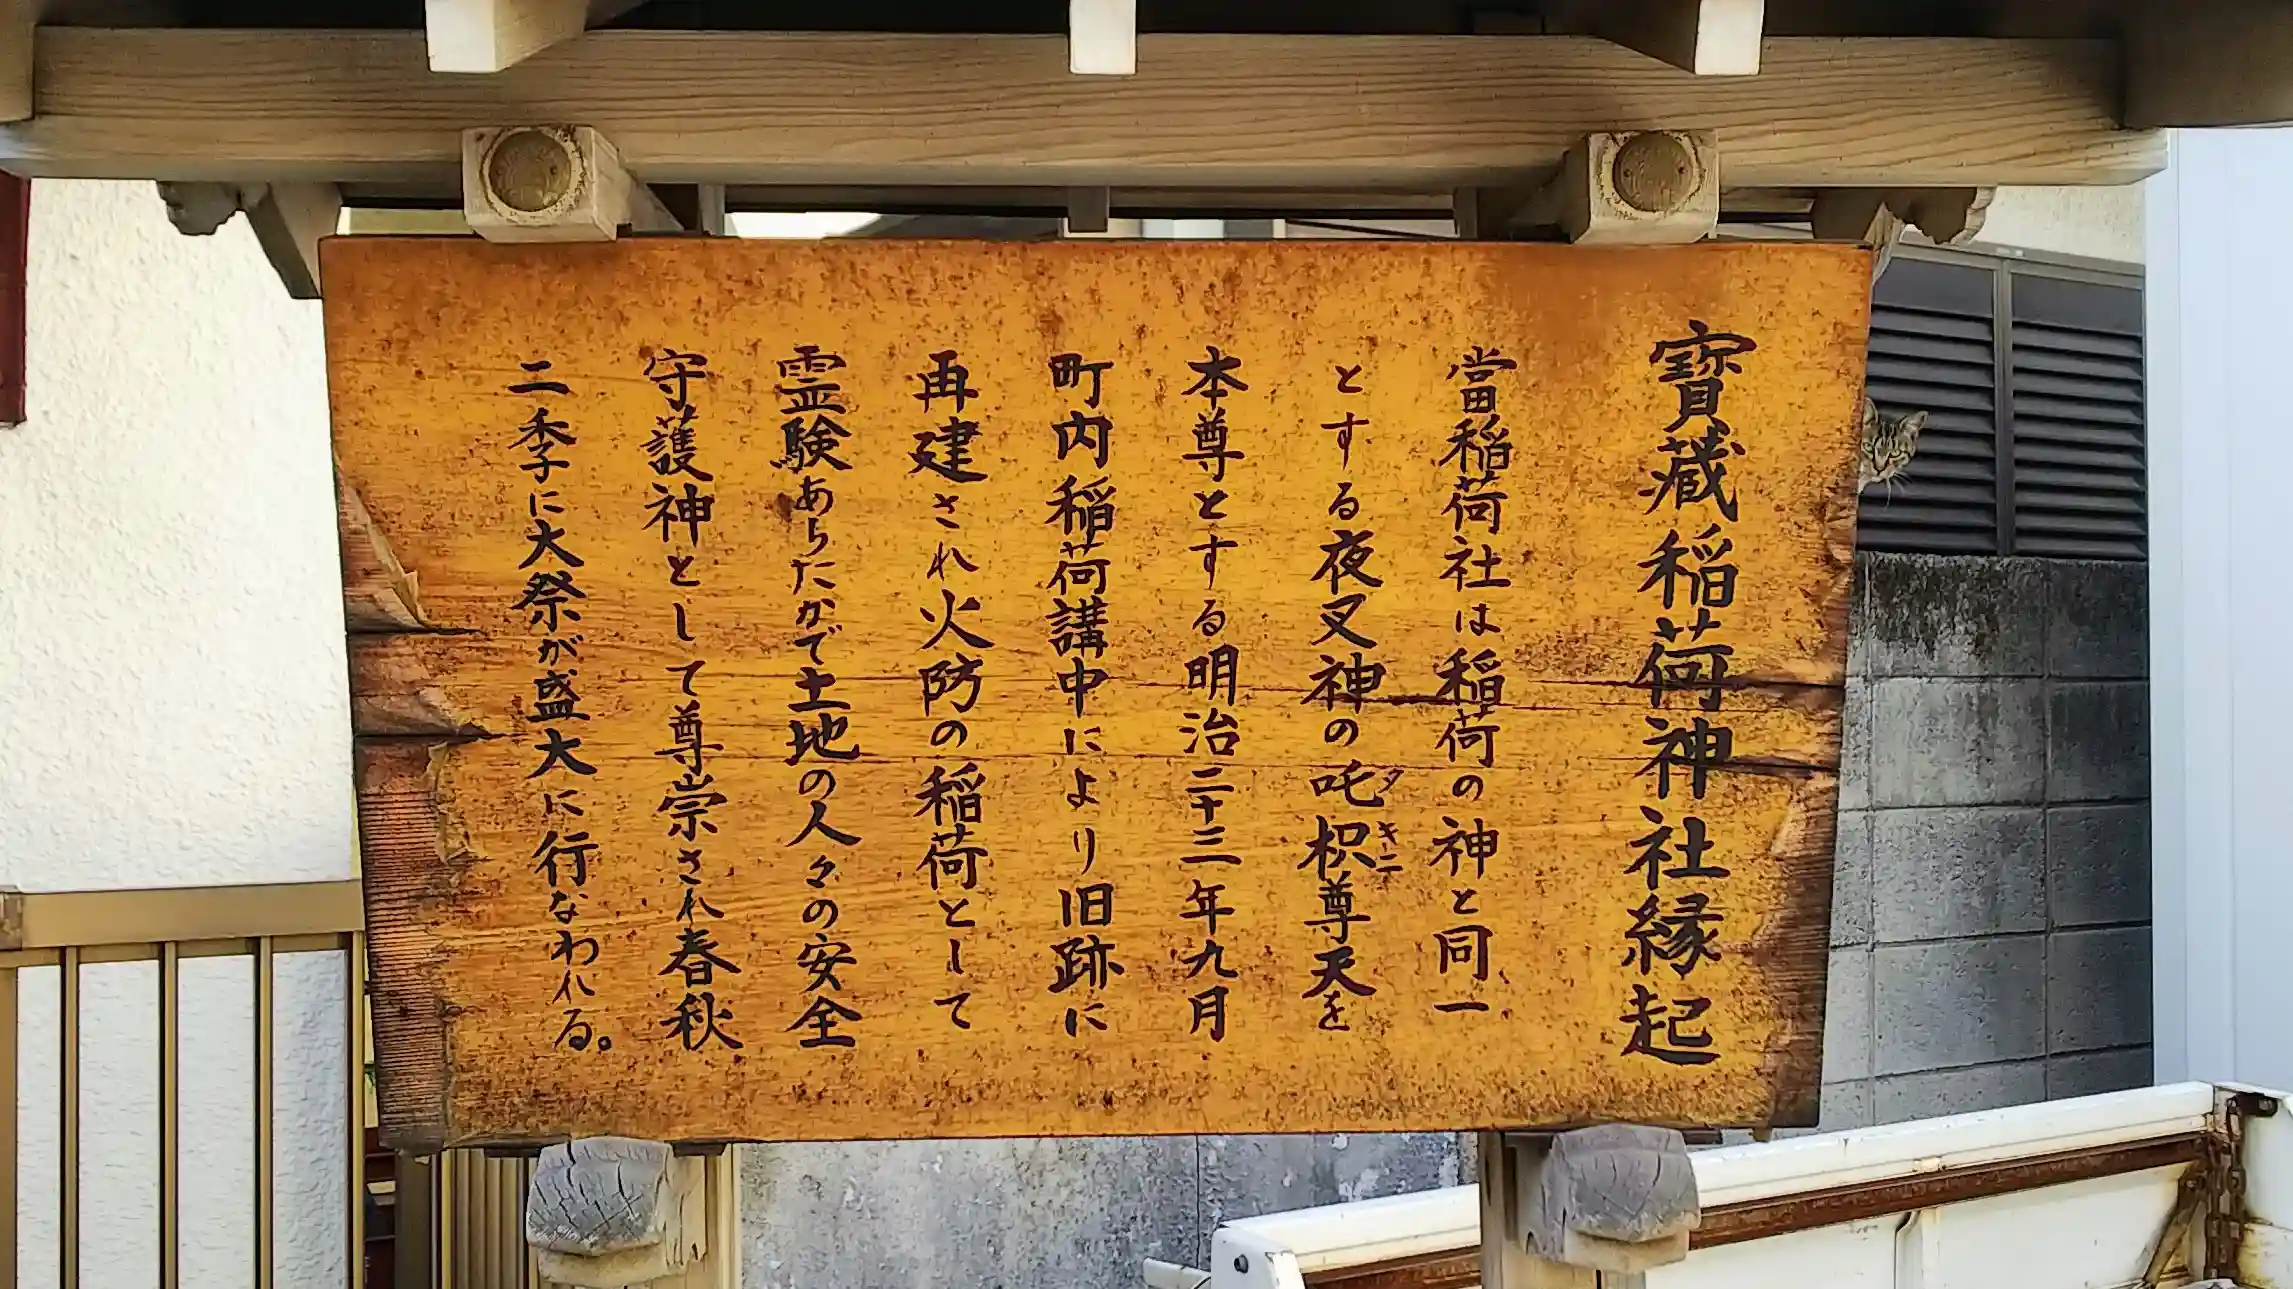 寳蔵稲荷神社縁起
當稲荷社は稲荷の神と同一
とする夜叉神の吒枳尊天を
タキニ
本尊とする明治二十三年九月
町内稲荷講中により旧跡に
再建され火防の稲荷として
霊験あらたかで土地の人々の安全
守護神として尊崇され春秋
二季に大祭が盛大に行なわれる。